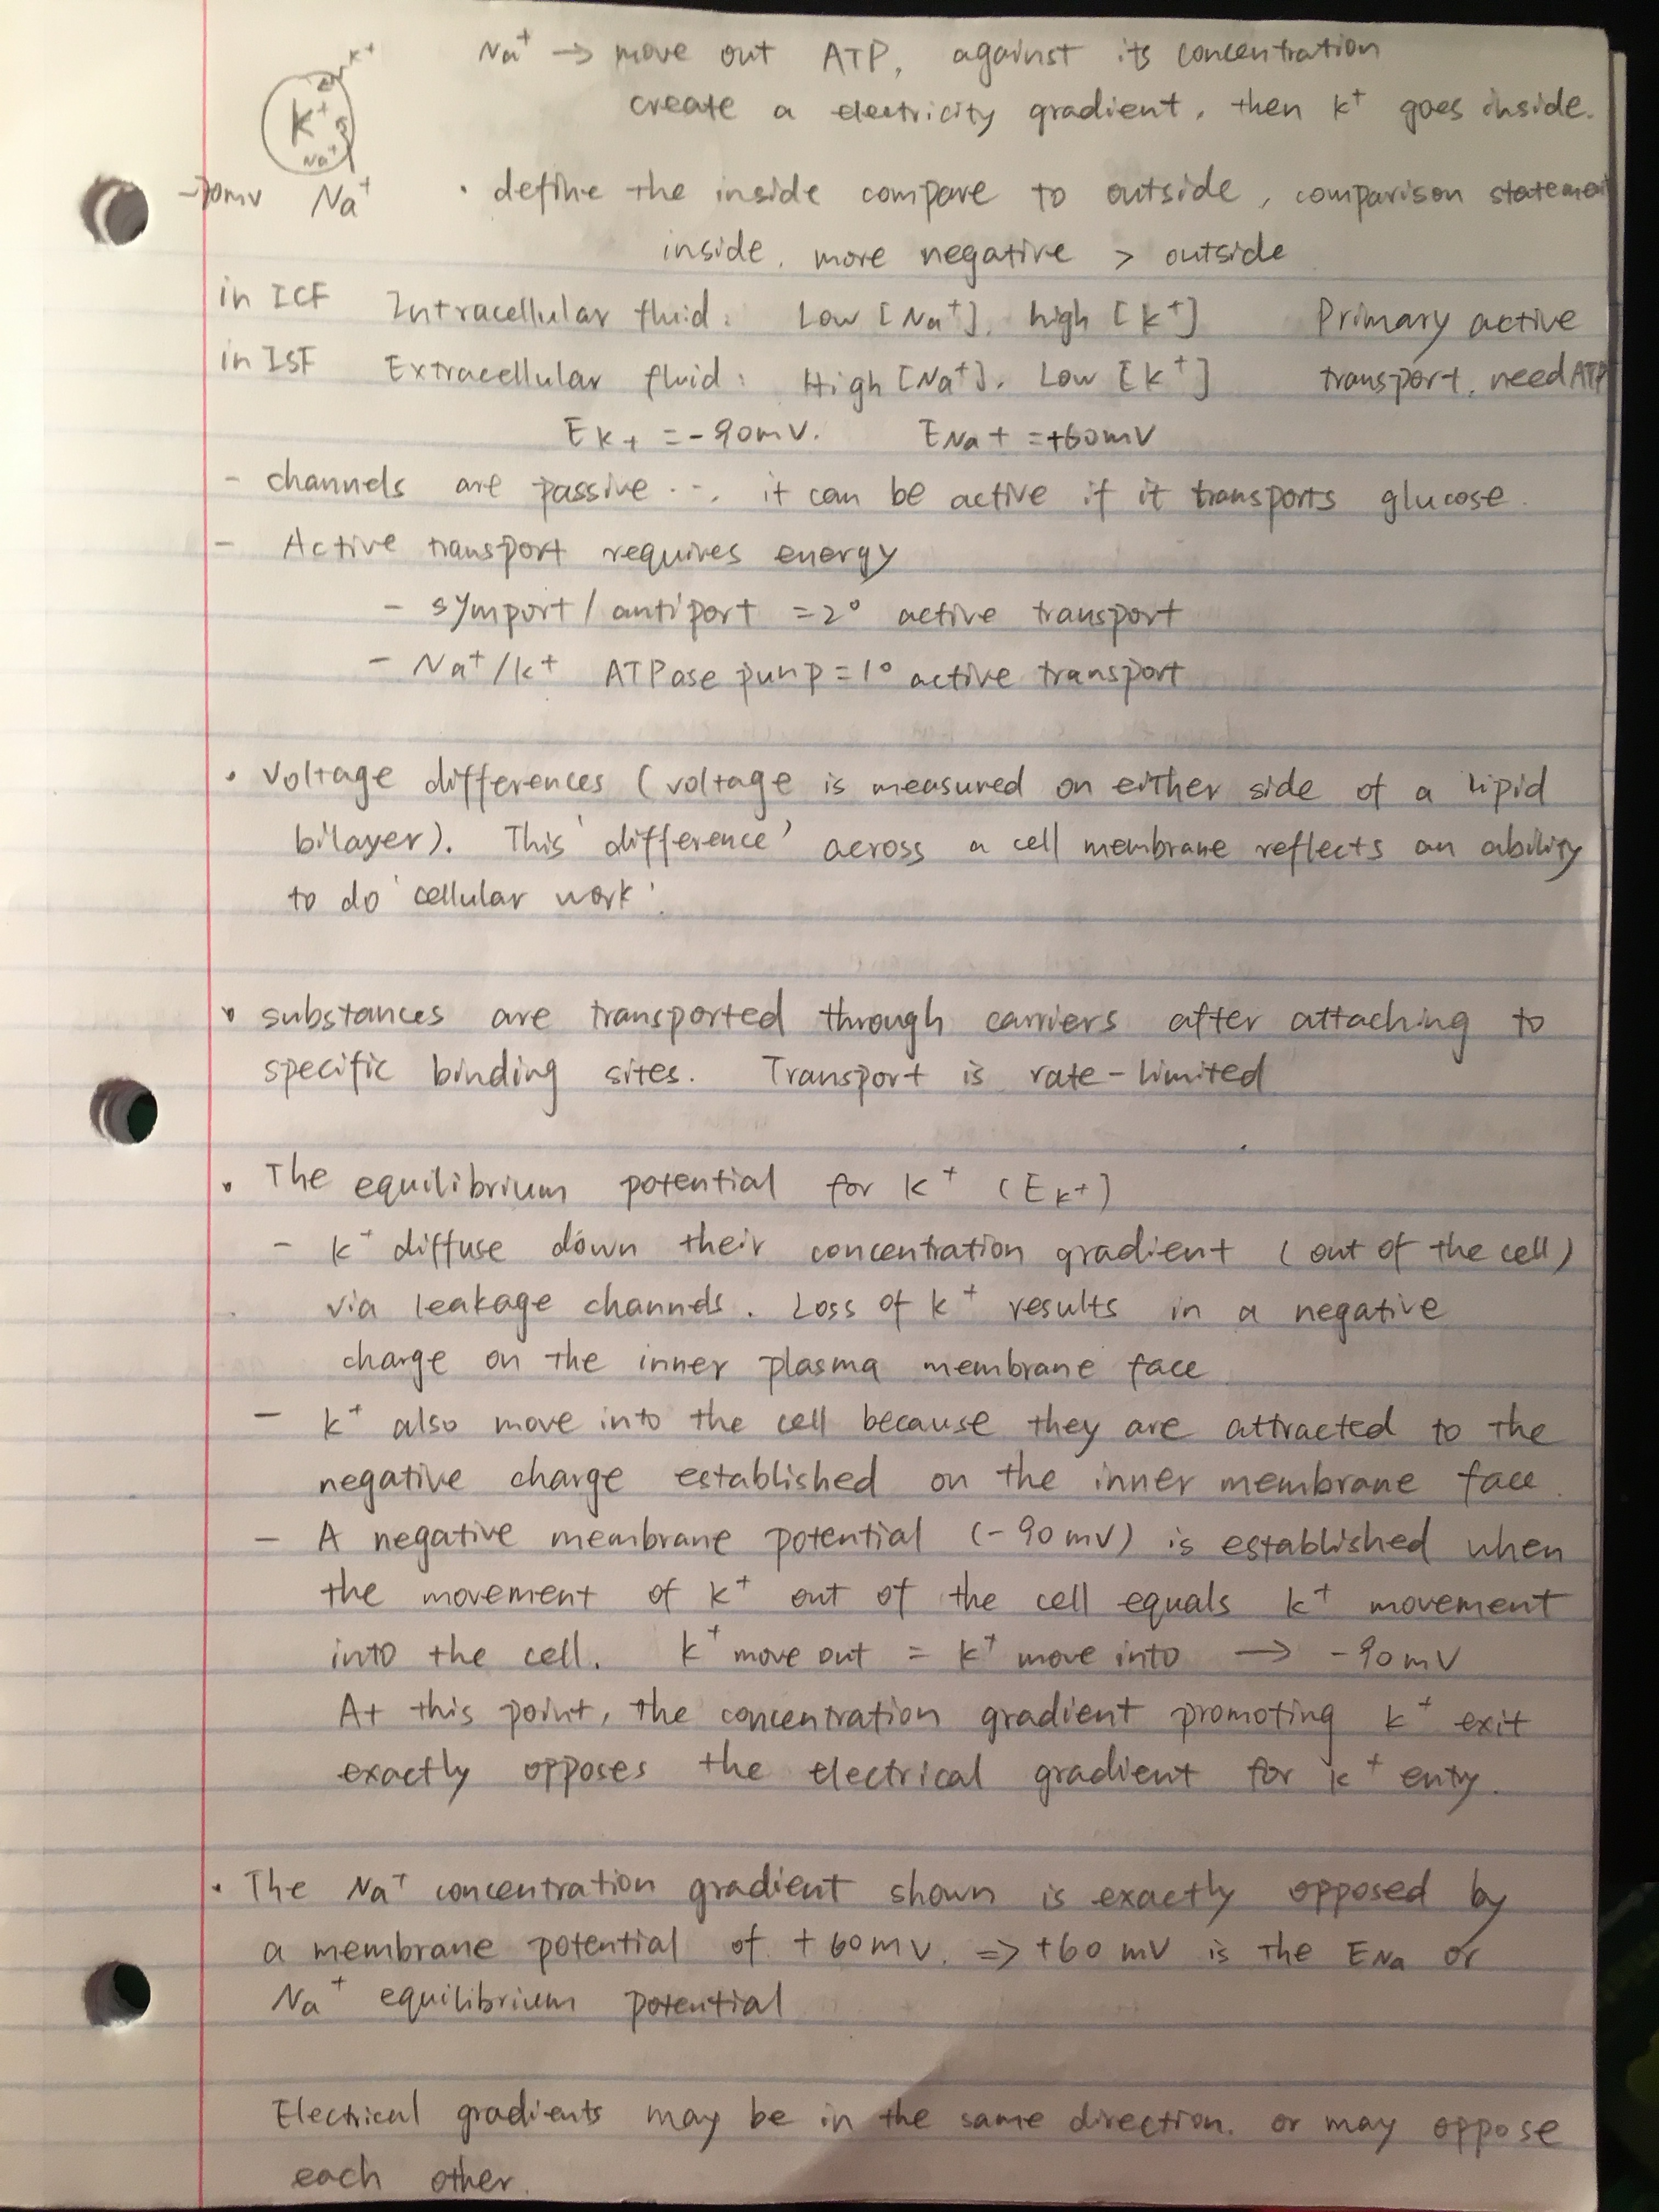 Na⁺ → move out ATP, against its concentration
create a electricity gradient, then K⁺ goes inside.
K⁺
K⁺
Na⁺
-70mV Na⁺
· define the inside compare to outside, comparison statement
inside, more negative > outside
in ICF Intracellular fluid: Low [Na⁺], high [K⁺] Primary active
in ISF Extracellular fluid: High [Na⁺], Low [K⁺] transport, need ATP
EK+ = -90mV. ENa+ = +60mV
- channels are passive ..., it can be active if it transports glucose.
- Active transport requires energy
- symport / antiport = 2° active transport
- Na⁺/K⁺ ATPase punp = 1° active transport
· Voltage differences (voltage is measured on either side of a lipid
bilayer). This 'difference' across a cell membrane reflects an ability
to do 'cellular work'.
· substances are transported through carriers after attaching to
specific binding sites. Transport is rate-limited
· The equilibrium potential for K⁺ (EK+)
- K⁺ diffuse down their concentration gradient (out of the cell)
via leakage channels. Loss of K⁺ results in a negative
charge on the inner plasma membrane face
- K⁺ also move into the cell because they are attracted to the
negative charge established on the inner membrane face.
- A negative membrane potential (-90mV) is established when
the movement of K⁺ out of the cell equals K⁺ movement
into the cell. K⁺ move out = K⁺ move into → -90mV
At this point, the concentration gradient promoting K⁺ exit
exactly opposes the electrical gradient for K⁺ enty.
· The Na⁺ concentration gradient shown is exactly opposed by
a membrane potential of +60mV. ⇒ +60mV is the ENa or
Na⁺ equilibrium potential
Electrical gradients may be in the same direction. or may oppose
each other.